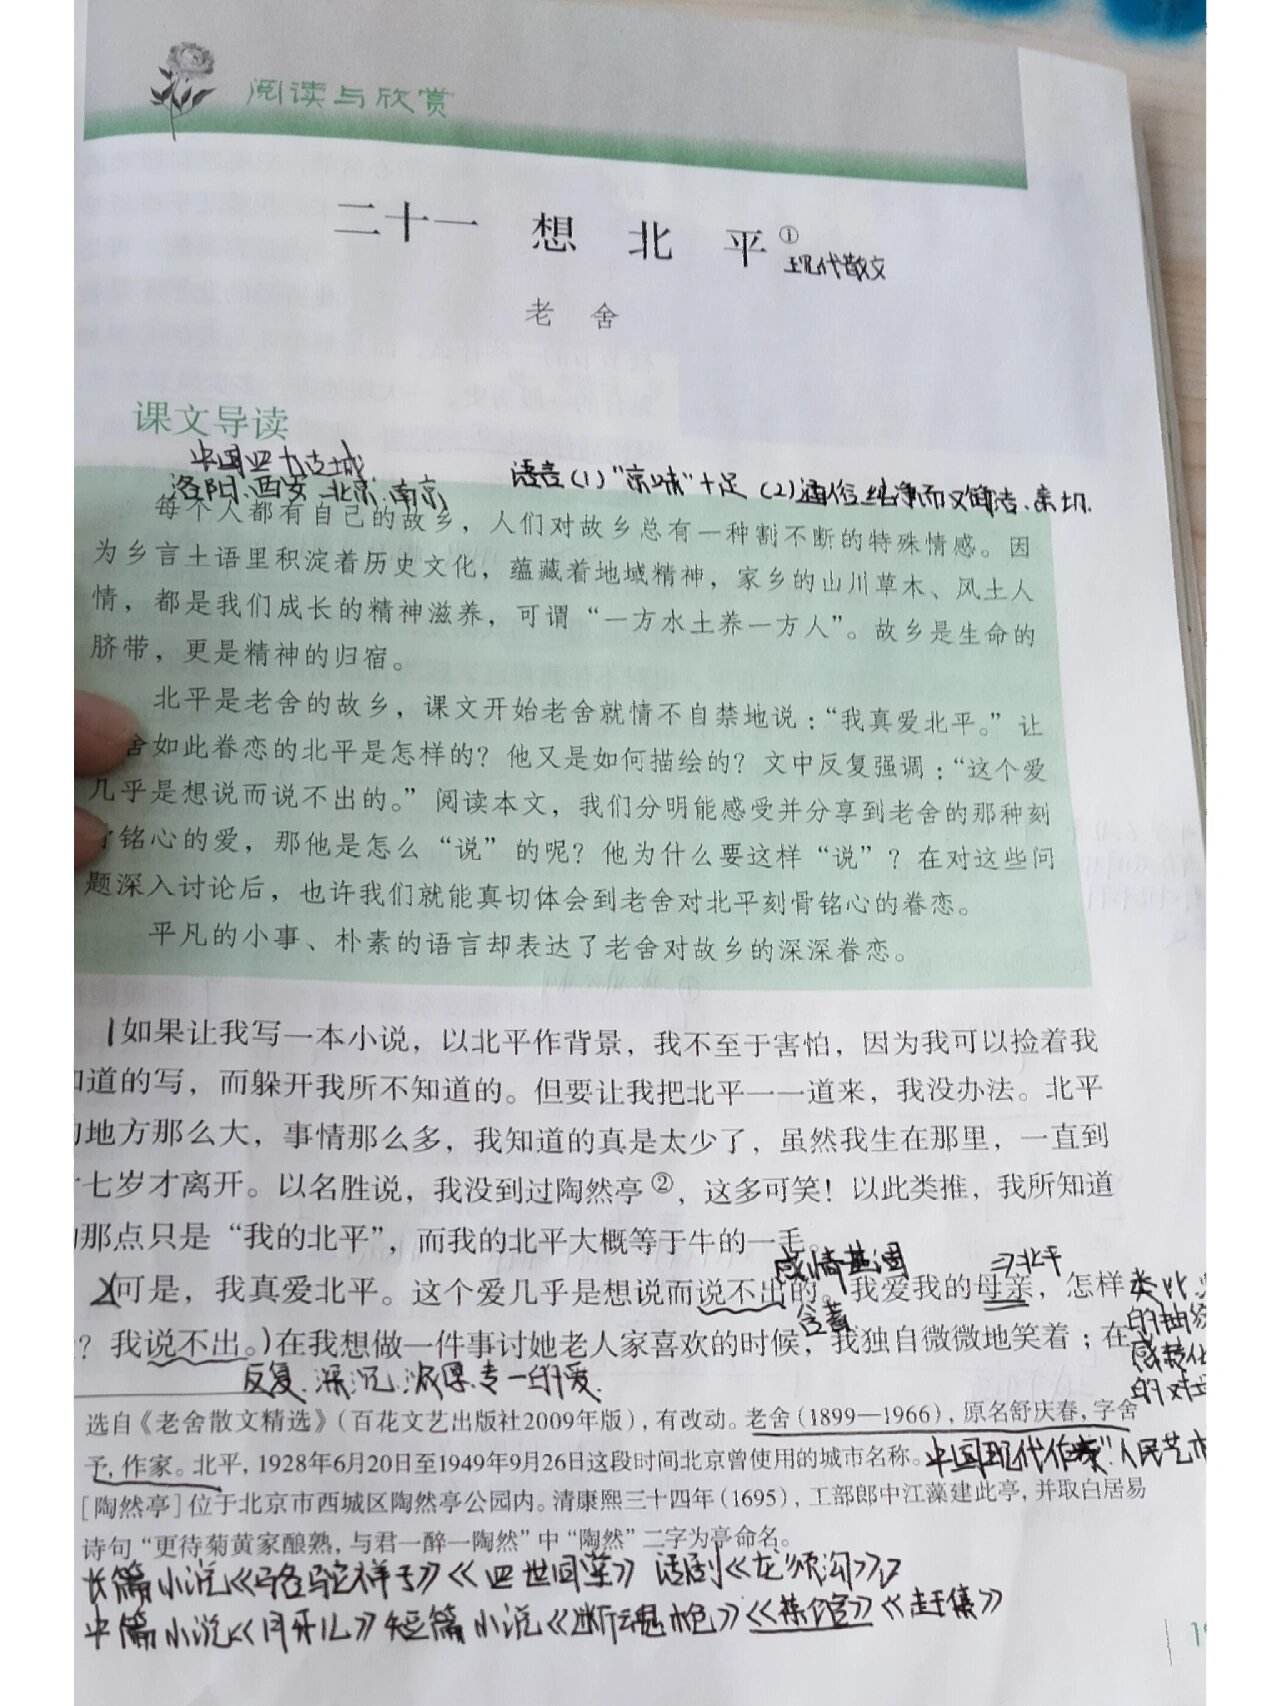 阅读与欣赏
二十一 想北平①
现代散文
老舍
课文导读
中国四大古城
洛阳、西安、北京、南京
语言(1)"京味"十足 (2)通俗、纯净而又简洁、亲切.
每个人都有自己的故乡，人们对故乡总有一种割不断的特殊情感。因
为乡言土语里积淀着历史文化，蕴藏着地域精神，家乡的山川草木、风土人
情，都是我们成长的精神滋养，可谓“一方水土养一方人”。故乡是生命的
脐带，更是精神的归宿。
北平是老舍的故乡，课文开始老舍就情不自禁地说：“我真爱北平。”让
舍如此眷恋的北平是怎样的？他又是如何描绘的？文中反复强调：“这个爱
几乎是想说而说不出的。”阅读本文，我们分明能感受并分享到老舍的那种刻
铭心的爱，那他是怎么“说”的呢？他为什么要这样“说”？在对这些问
题深入讨论后，也许我们就能真切体会到老舍对北平刻骨铭心的眷恋。
平凡的小事、朴素的语言却表达了老舍对故乡的深深眷恋。
1如果让我写一本小说，以北平作背景，我不至于害怕，因为我可以捡着我
道的写，而躲开我所不知道的。但要让我把北平一一道来，我没办法。北平
地方那么大，事情那么多，我知道的真是太少了，虽然我生在那里，一直到
七岁才离开。以名胜说，我没到过陶然亭②，这多可笑！以此类推，我所知道
那点只是“我的北平”，而我的北平大概等于牛的一毛。
感情基调
⇒北平
2可是，我真爱北平。这个爱几乎是想说而说不出的。我爱我的母亲，怎样
类比
含蓄
的抽
？我说不出。）在我想做一件事讨她老人家喜欢的时候，我独自微微地笑着；在
感转化
反复、深沉、浓厚、专一的爱.
的对
选自《老舍散文精选》（百花文艺出版社2009年版），有改动。老舍（1899—1966），原名舒庆春，字舍
予，作家。北平，1928年6月20日至1949年9月26日这段时间北京曾使用的城市名称。
中国现代作家"人民艺术
［陶然亭］位于北京市西城区陶然亭公园内。清康熙三十四年（1695），工部郎中江藻建此亭，并取白居易
诗句“更待菊黄家酿熟，与君一醉一陶然”中“陶然”二字为亭命名。
长篇小说《骆驼祥子》《四世同堂》 话剧《龙须沟》
中篇小说《月牙儿》短篇小说《断魂枪》《茶馆》《赶集》
1